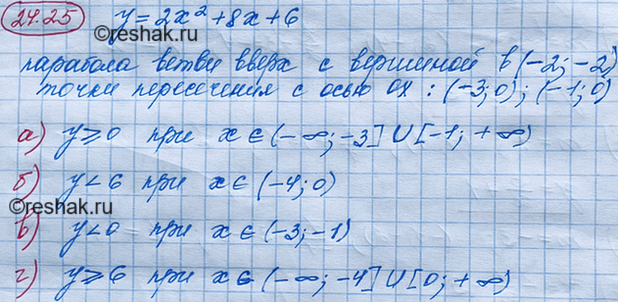 24.25 y = 2x² + 8x + 6
парабола ветви вверх с вершиной в (-2; -2)
точки пересечения с осью OX : (-3; 0); (-1; 0)
а) y ⩾ 0 при x ∈ (-∞; -3] ∪ [-1; +∞)
©reshak.ru
б) y < 6 при x ∈ (-4; 0)
©reshak.ru
в) y < 0 при x ∈ (-3; -1)
г) y ⩾ 6 при x ∈ (-∞; -4] ∪ [0; +∞)
©reshak.ru